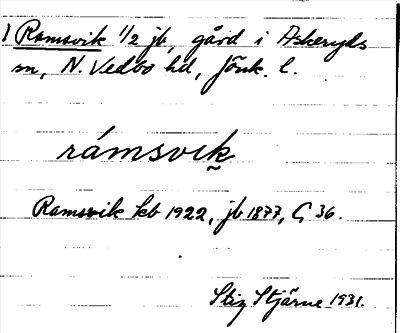 1 Ramsvik 1/2 jb, gård i Askeryds
sn, N. Vedbo hd, Jönk. l.
rámsvik
Ramsvik kb 1922, jb 1877, G 36.
Stig Stjärne 1931.